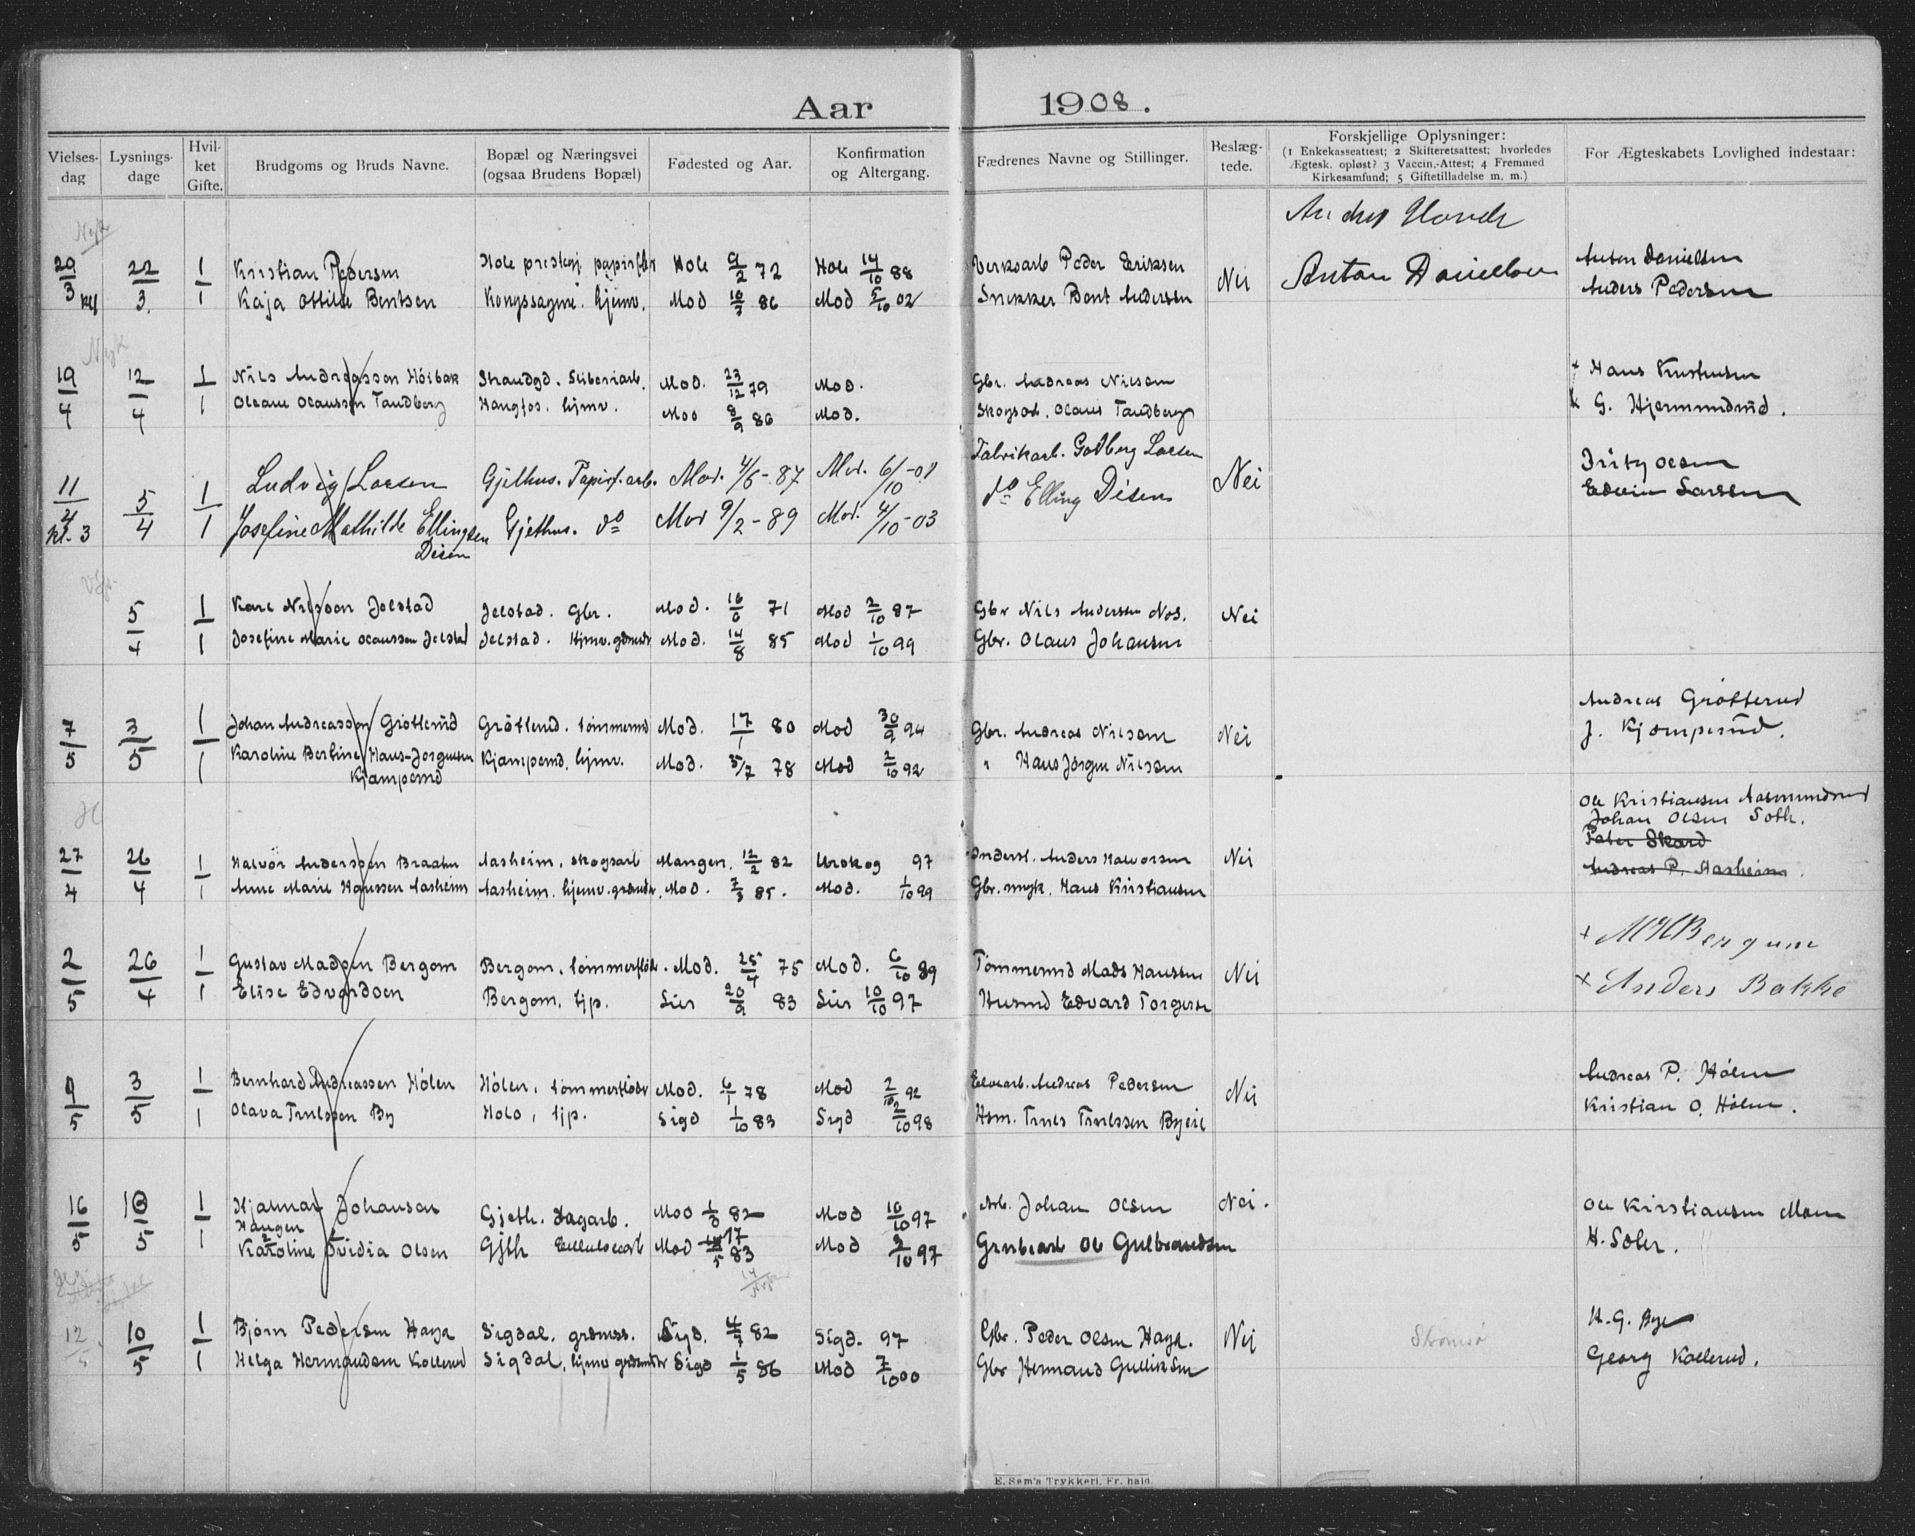 Aar 1908.
Vielses-dag Lysnings-dage Hvil-ket Gifte. Brudgoms og Bruds Navne. Bopæl og Næringsvei (ogsaa Brudens Bopæl) Fødested og Aar. Konfirmation og Altergang. Fædrenes Navne og Stillinger. Beslæg-tede. Forskjellige Oplysninger: (1 Enkekasseattest; 2 Skifteretsattest; hvorledes Ægtesk. opløst? 3 Vaccin.-Attest; 4 Fremmed Kirkesamfund; 5 Giftetilladelse m. m.) For Ægteskabets Lovlighed indestaar:
29/3 22/3. 1 Kristian Pedersen Hole Hole 9/2 72 Hole 14/10 88 Verksarb Peder Eriksen Nei Anton Danielsen Anton Danielsen
1 Kaja Ottilde Bentsen Kongssagene. hjemv. Mod 10/3 86 Mod 5/10 02 Snekker Bent Andersen Anders Pedersen
19/4 12/4 1 Nils Andreassen Höibak Strandgd. Sliberiarb. Mod. 23/12 79 Mod. Gbr. Andreas Nilsen Hans Kristensen
1 Oleane Olaussen Tandberg hjmv. Mod 8/9 86 Mod. Skogsarb. Olaus Tandberg G. Hjermundrud.
11/4 kl. 3 5/4 1 Ludvig Larsen Gjethus. Papirf.arb. Mod. 4/6-87 Mod. 6/10-01 Fabrikarb. Godberg Larsen Nei Fritz Olsen
1 Josefine Mathilde Ellingsen Disen Gjethus. do Mod 9/2-89 Mod. 4/10-03 do Elling Disen Edvin Larssen
5/4 1 Karl Nilsson Jelstad Jelstad. Gbr. Mod. 16/6 71 Mod 2/10 87 Gbr Nils Anderssen Nos. Nei
1 Josefine Marie Olaussen Jelstad Jelstad. Hjmv. gdmdr Mod. 14/8 85 Mod 1/10 99 Gbr. Olaus Johansen
7/5 3/5 1 Johan Andreassen Grötterud Grötterud. tømmermd Mod. 17/1 80 Mod 30/9 94 Gbr. Andreas Nilsen Nei Andreas Grötterud
1 Karoline Bertine Hans-Jørgensen Kjæmperud Kjæmperud. hjmv. Mod. 5/7 78 Mod 2/10 92 " Hans Jørgen Nilsen J. Kjæmperud.
Ole Kristiansen Aasmundrud
Johan Olsen Soth.
Peter Skard
27/4 26/4 1 Halvor Anderssen Braaten Aasheim. skogsarb Mangen. 12/2 82 Urskog 97 Inderst. Anders Halvorsen Nei Andreas P. Aasheim.
1 Anne Marie Hanssen Aasheim Aasheim. hjemv. grdmdr. Mod. 7/3 85. Mod. 1/10 99 Gbr. myk. Hans Kristiansen
2/5 26/4 1 Gustav Madsen Bergom Bergom. tømmerfløder. Mod. 25/4 75 Mod. 6/10 89 Tømmermd Mads Hanssen Nei M H Bergum
1 Elise Edvardsen Bergom. tjp. Lier 20/9 83 Lier 10/10 97 Husmd Edvard Torgersen Anders Bakke
9/5 3/5 1 Bernhard Andreassen Hólen Hólen. tømmerfløder Mod. 6/1 78 Mod 2/10 92 Elvearb. Andreas Pedersen Nei Andreas P. Hólen
1 Olava Trulssen By Holo, tjp. Sigd 1/10 83 Sigd 2/10 98 Hsm. Truls Trulssen Byeie Kristian O. Hólen.
16/5 10/5 1 Hjalmar Johansen Haugen Gjeth. Dagarb. Mod 82 Mod 10/10 97 Arb. Johan Olsen Nei. Ole Kristiansen Moen
1 Karoline Olsen Gjth Cellulosearb Mod 17/5 83 Mod 3/10 97 Grubearb Ole Gulbrandsen H. Soler.
12/5 10/5 1 Bjørn Pedersen Haga Sigdal. grdmss. Sigd. 4/3 82 Sigd. 97 Gbr. Peder Olsen Haga. Nei Strømsø H. G. Bye
1 Helga Hermandsen Kollerud Sigdal, hjmv grdmdtr Sigd 1/5 86 Mod 7/10 00 Gbr Hermand Gulliksen Georg Kollerud.
E. Sem's Trykkeri, Fr. hald.